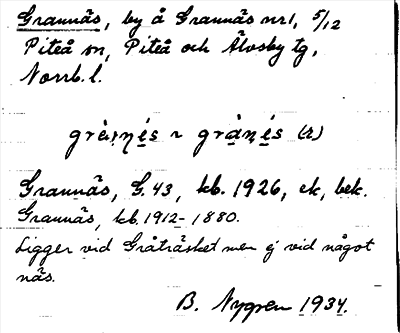 Grannäs, by å Grannäs nr 1, 5/12
Piteå sn, Piteå och Älvsby tg,
Norrb. l.
Grannäs, G. 43, kb. 1926, ek, bek.
Grannäs, kb. 1912-1880.
Ligger vid Gråträsket men ej vid något
näs.
B. Nygren 1934.